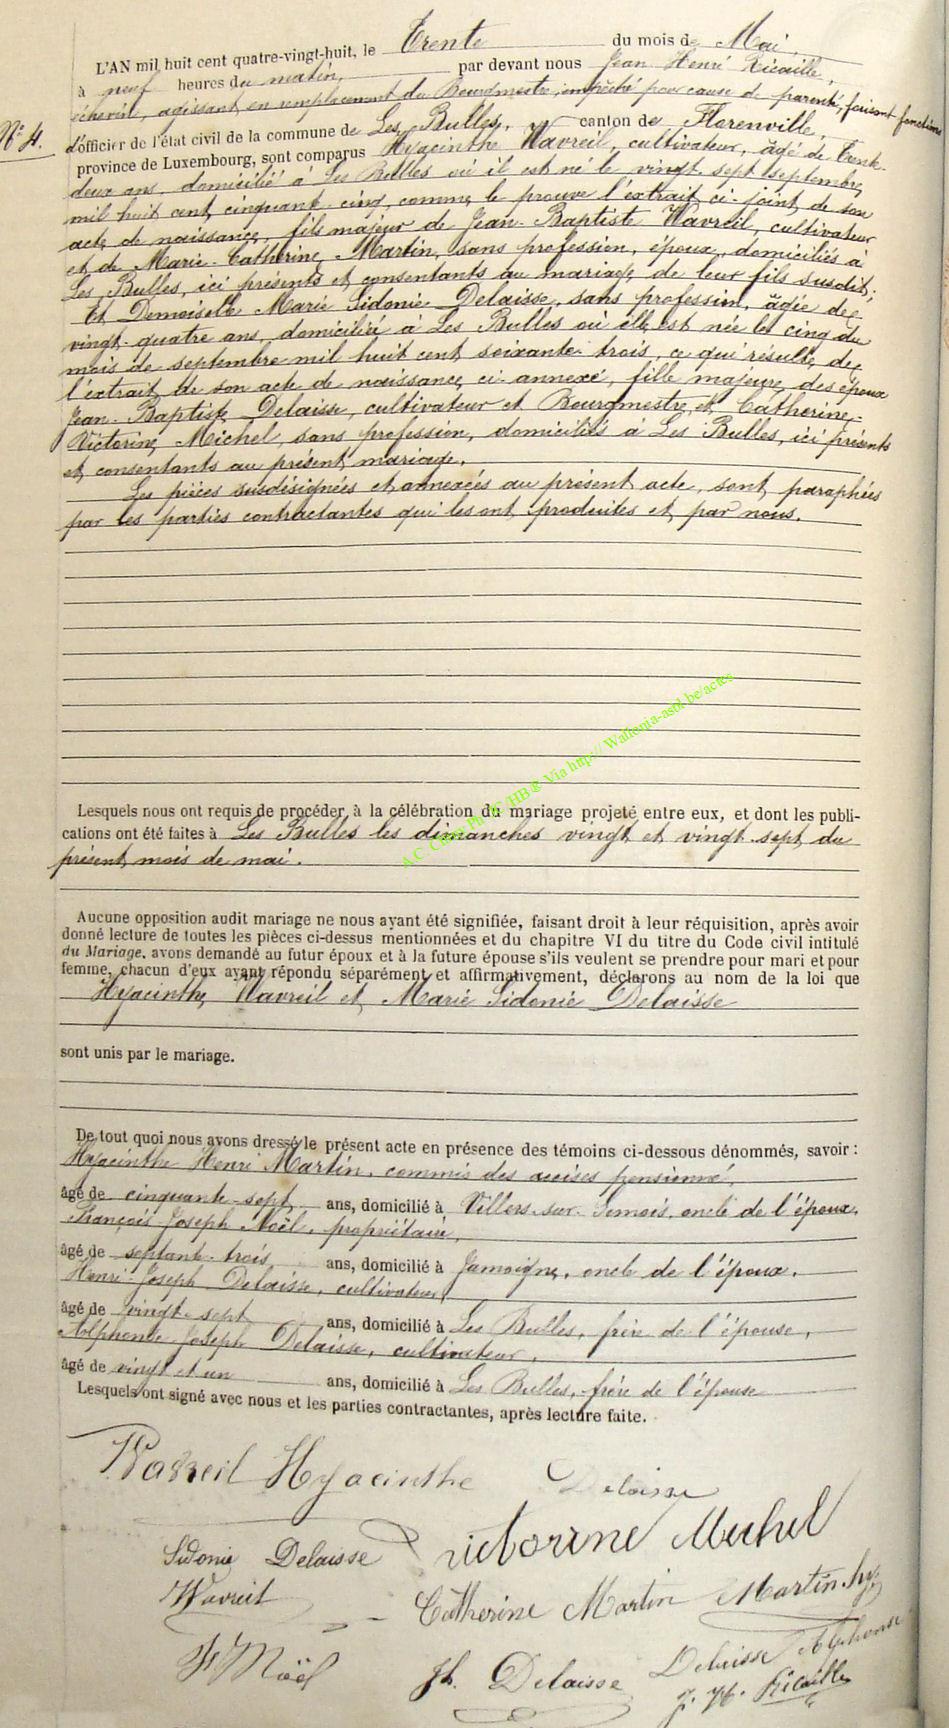 L'AN mil huit cent quatre-vingt-huit, le Trente du mois de Mai,
à neuf heures du matin, par devant nous Jean Henri Ricaille,
échevin, agissant en remplacement du Bourgmestre, empêché pour cause de parenté, faisant fonctions
N° 4.
d'officier de l'état civil de la commune de Les Bulles, canton de Florenville,
province de Luxembourg, sont comparus Hyacinthe Wavreil, cultivateur, âgé de trente-
deux ans, domicilié à Les Bulles où il est né le vingt-sept septembre
mil huit cent cinquante-cinq, comme le prouve l'extrait ci-joint de son
acte de naissance, fils majeur de Jean-Baptiste Wavreil, cultivateur
et de Marie-Catherine Martin, sans profession, époux, domiciliés à
Les Bulles, ici présents et consentants au mariage de leur fils susdit;
Et Demoiselle Marie Sidonie Delaisse, sans profession, âgée de
vingt-quatre ans, domiciliée à Les Bulles où elle est née le cinq du
mois de septembre mil huit cent soixante-trois, ce qui résulte de
l'extrait de son acte de naissance ci-annexé, fille majeure des époux
Jean-Baptiste Delaisse, cultivateur et Bourgmestre et Catherine-
Victorine Michel, sans profession, domiciliés à Les Bulles, ici présents
et consentants au présent mariage.
Les pièces susdésignées et annexées au présent acte, sont paraphées
par les parties contractantes qui les ont produites et par nous.
Via http://Wallonia-asbl.be/actes
Lesquels nous ont requis de procéder à la célébration du mariage projeté entre eux, et dont les publi-
cations ont été faites à Les Bulles les dimanches vingt et vingt-sept du
présent mois de mai.
Aucune opposition audit mariage ne nous ayant été signifiée, faisant droit à leur réquisition, après avoir
donné lecture de toutes les pièces ci-dessus mentionnées et du chapitre VI du titre du Code civil intitulé
du Mariage, avons demandé au futur époux et à la future épouse s'ils veulent se prendre pour mari et pour
femme, chacun d'eux ayant répondu séparément et affirmativement, déclarons au nom de la loi que
Hyacinthe Wavreil et Marie Sidonie Delaisse
sont unis par le mariage.
De tout quoi nous avons dressé le présent acte en présence des témoins ci-dessous dénommés, savoir :
Hyacinthe Henri Martin, commis des accises pensionné,
âgé de cinquante-sept ans, domicilié à Villers-sur-Semois, oncle de l'époux,
François Joseph Noël, propriétaire,
âgé de septante-trois ans, domicilié à Jamoigne, oncle de l'époux.
Henri-Joseph Delaisse, cultivateur,
âgé de vingt-sept ans, domicilié à Les Bulles, frère de l'épouse,
Alphonse Joseph Delaisse, cultivateur,
âgé de vingt et un ans, domicilié à Les Bulles, frère de l'épouse
Lesquels ont signé avec nous et les parties contractantes, après lecture faite.
Wavreil Hyacinthe Delaisse
Sidonie Delaisse Victorine Michel
Wavreil Catherine Martin Martin. hy
F Noël Jh. Delaisse Delaisse Alphonse
J. H. Ricaille